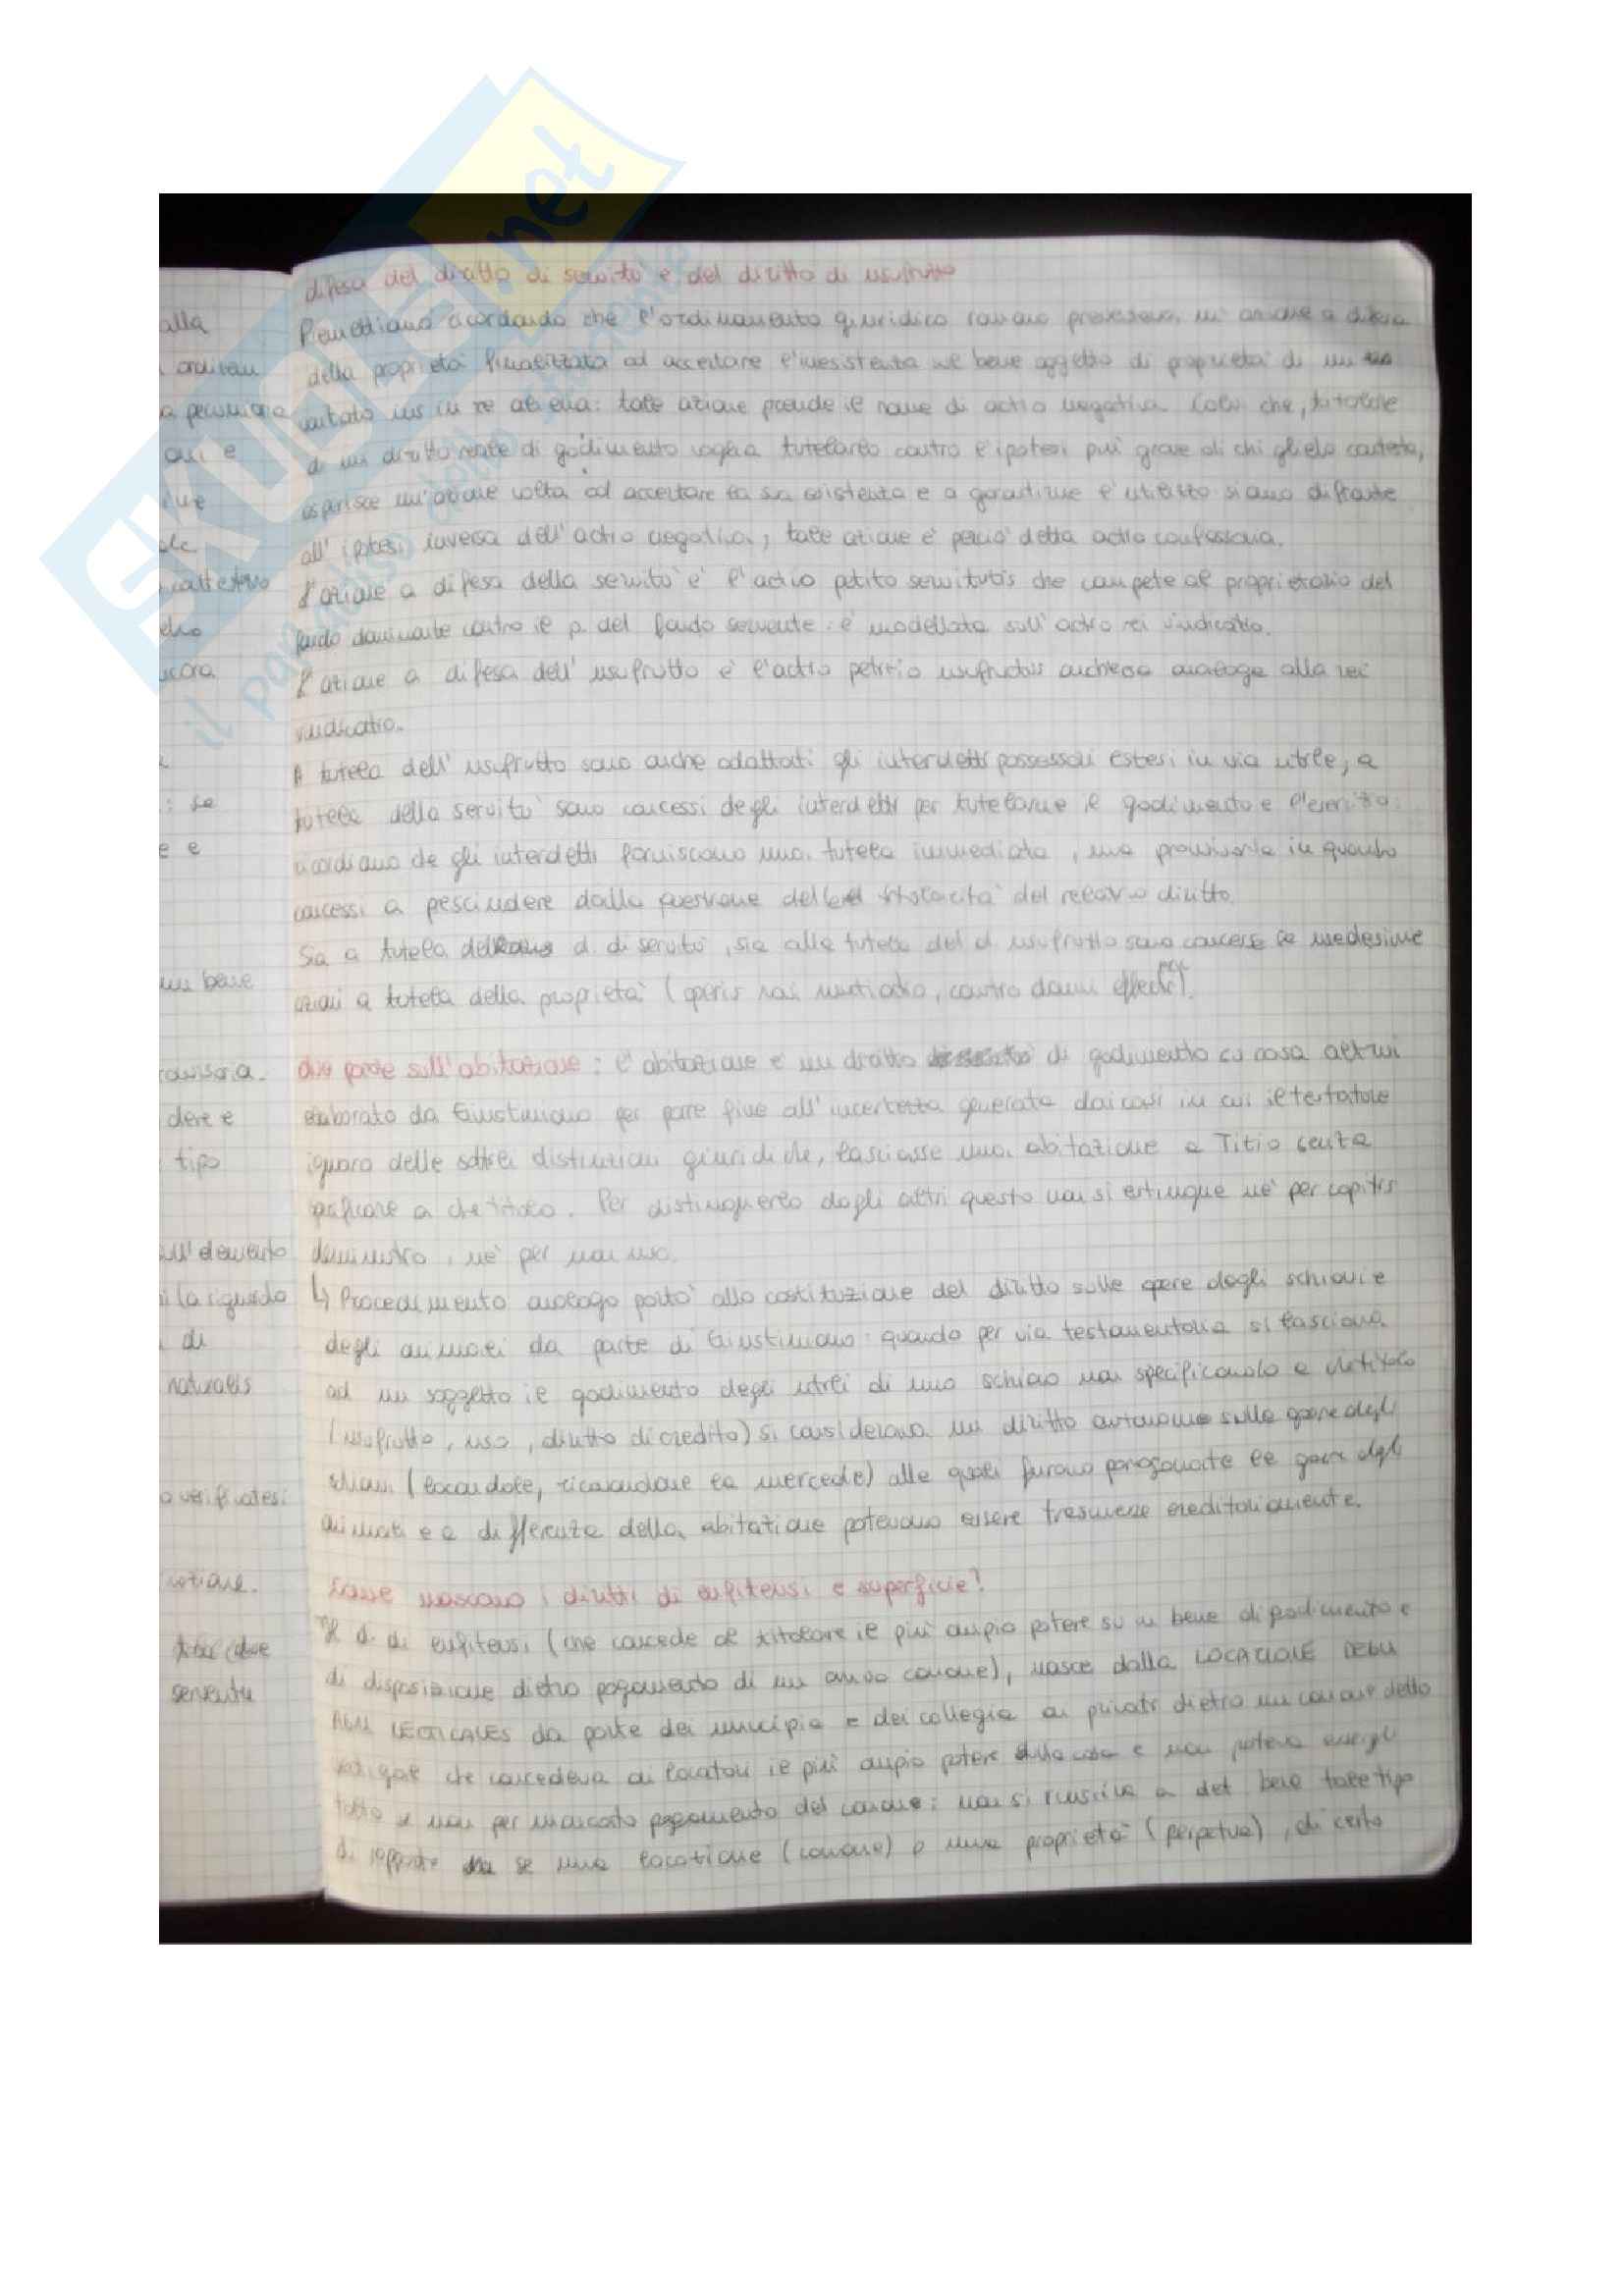 SKUOLA.net
il paradiso dello studente
alla
a pecuniaria
ari e
ancora
: se
e e
un bene
dere e
tipo
sull'elemento
di
naturalis
o verificatesi
servente
difesa del diritto di servitù e del diritto di usufrutto
Premettiamo ricordando che l'ordinamento giuridico romano prevedeva un'azione a difesa
della proprietà finalizzata ad accertare l'inesistenza sul bene oggetto di proprietà di un
vantato ius in re aliena: tale azione prende il nome di actio negativa. Colui che, titolare
di un diritto reale di godimento voglia tutelarlo contro l'ipotesi più grave di chi glielo contesta,
esperisce un'azione volta ad accertare la sua esistenza e a garantirne l'utilizzo siamo di fronte
all'ipotesi inversa dell'actio negativa, tale azione è perciò detta actio confessoria.
L'azione a difesa della servitù è l'actio petitio servitutis che compete al proprietario del
fondo dominante contro il p. del fondo servente: è modellata sull'actio rei vindicatio.
L'azione a difesa dell'usufrutto è l'actio petitio usufructus anch'essa analoga alla rei
vindicatio.
A tutela dell'usufrutto sono anche adattati gli interdetti possessori estesi in via utile, a
tutela della servitù sono concessi degli interdetti per tutelarne il godimento e l'esercizio.
ricordiamo che gli interdetti forniscono una tutela immediata, ma provvisoria in quanto
concessi a prescindere dalla questione della titolarità del relativo diritto.
Sia a tutela del d. di servitù, sia alla tutela del d. usufrutto sono concesse le medesime
azioni a tutela della proprietà (operis novi nuntiatio, contro danni effecti).
due parole sull'abitazione: l'abitazione è un diritto di godimento su cosa altrui
elaborato da Giustiniano per porre fine all'incertezza generata dai casi in cui il testatore
ignaro delle sottili distinzioni giuridiche, lasciasse una abitazione a Titio senza
specificare a che titolo. Per distinguerlo dagli altri questo non si estingue né per capitis
deminutio, né per non uso.
↳ Procedimento analogo portò alla costituzione del diritto sulle opere degli schiavi e
degli animali da parte di Giustiniano: quando per via testamentaria si lasciava
ad un soggetto il godimento degli utili di uno schiavo non specificando a che titolo
(usufrutto, uso, diritto di credito) si considerava un diritto autonomo sulle opere degli
schiavi (locandole, ricavandone la mercede) alle quali furono paragonate le opere degli
animali e a differenza della abitazione potevano essere trasmesse ereditariamente.
Come nascono i diritti di enfiteusi e superficie?
Il d. di enfiteusi (che concede al titolare il più ampio potere su un bene di godimento e
di disposizione dietro pagamento di un annuo canone), nasce dalla LOCAZIONE DEGLI
AGRI VECTIGALES da parte dei municipia e dei collegia ai privati dietro un canone detto
vectigal che concedeva ai locatori il più ampio potere sulla cosa e non poteva esergli
tolto se non per mancato pagamento del canone: non si riusciva a det. bene tale tipo
di rapporto se una locazione (canone) o una proprietà (perpetua), di certo